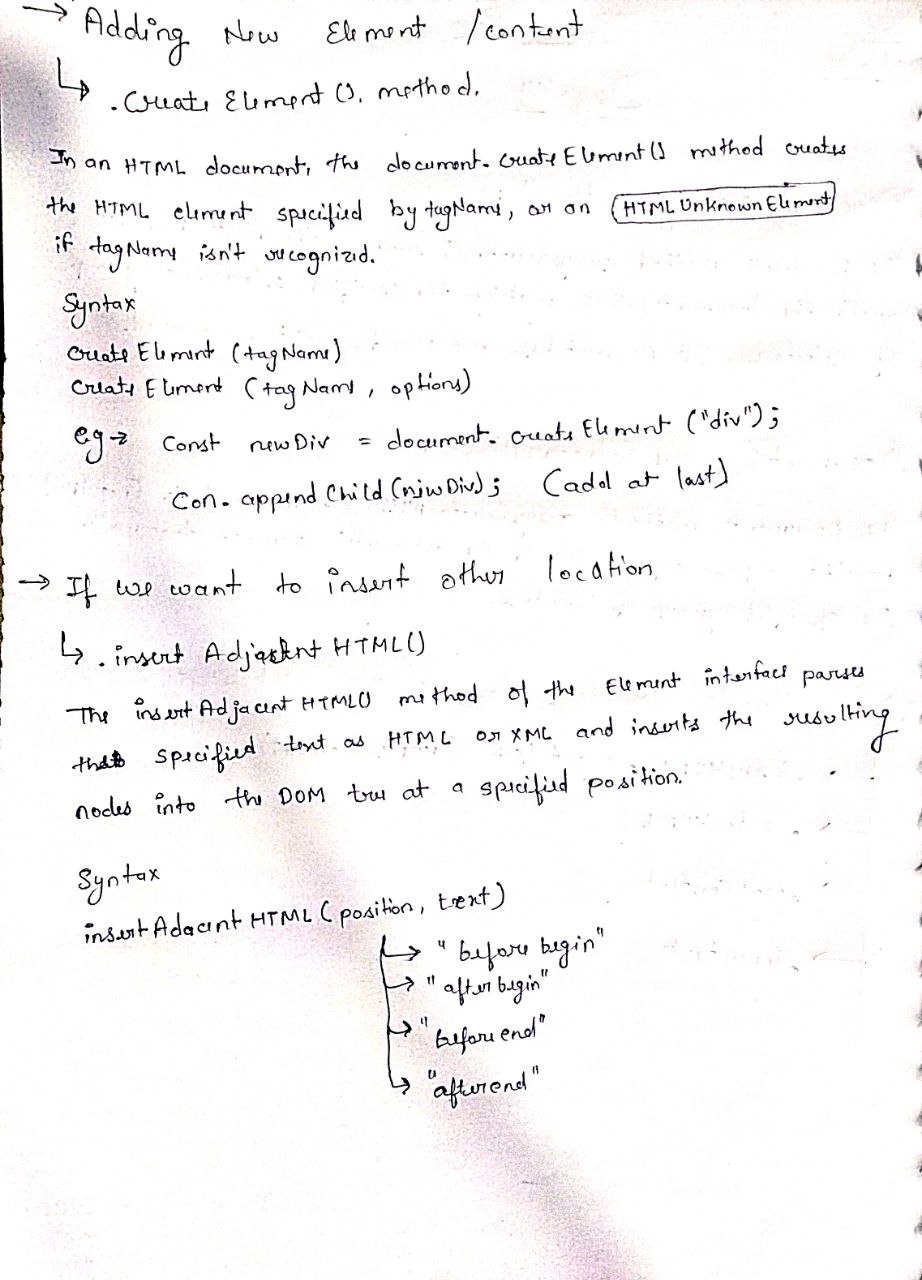 → Adding New Element / content
↳ . Create Element (). method.
In an HTML document, the document. Create Element () method creates
the HTML element specified by tagName, or an HTML Unknown Element
if tagName isn't recognized.
Syntax
Create Element (tagName)
Create Element (tagName, options)
eg → Const newDiv = document. Create Element ("div");
Con. append Child (newDiv); (add at last)
→ If we want to insert other location
↳ . insert Adjacent HTML()
The insert Adjacent HTML() method of the Element interface parses
the specified text as HTML or XML and inserts the resulting
nodes into the DOM tree at a specified position.
Syntax
insert Adacent HTML (position, text)
↳ "before begin"
↳ "after begin"
↳ "before end"
↳ "afterend"